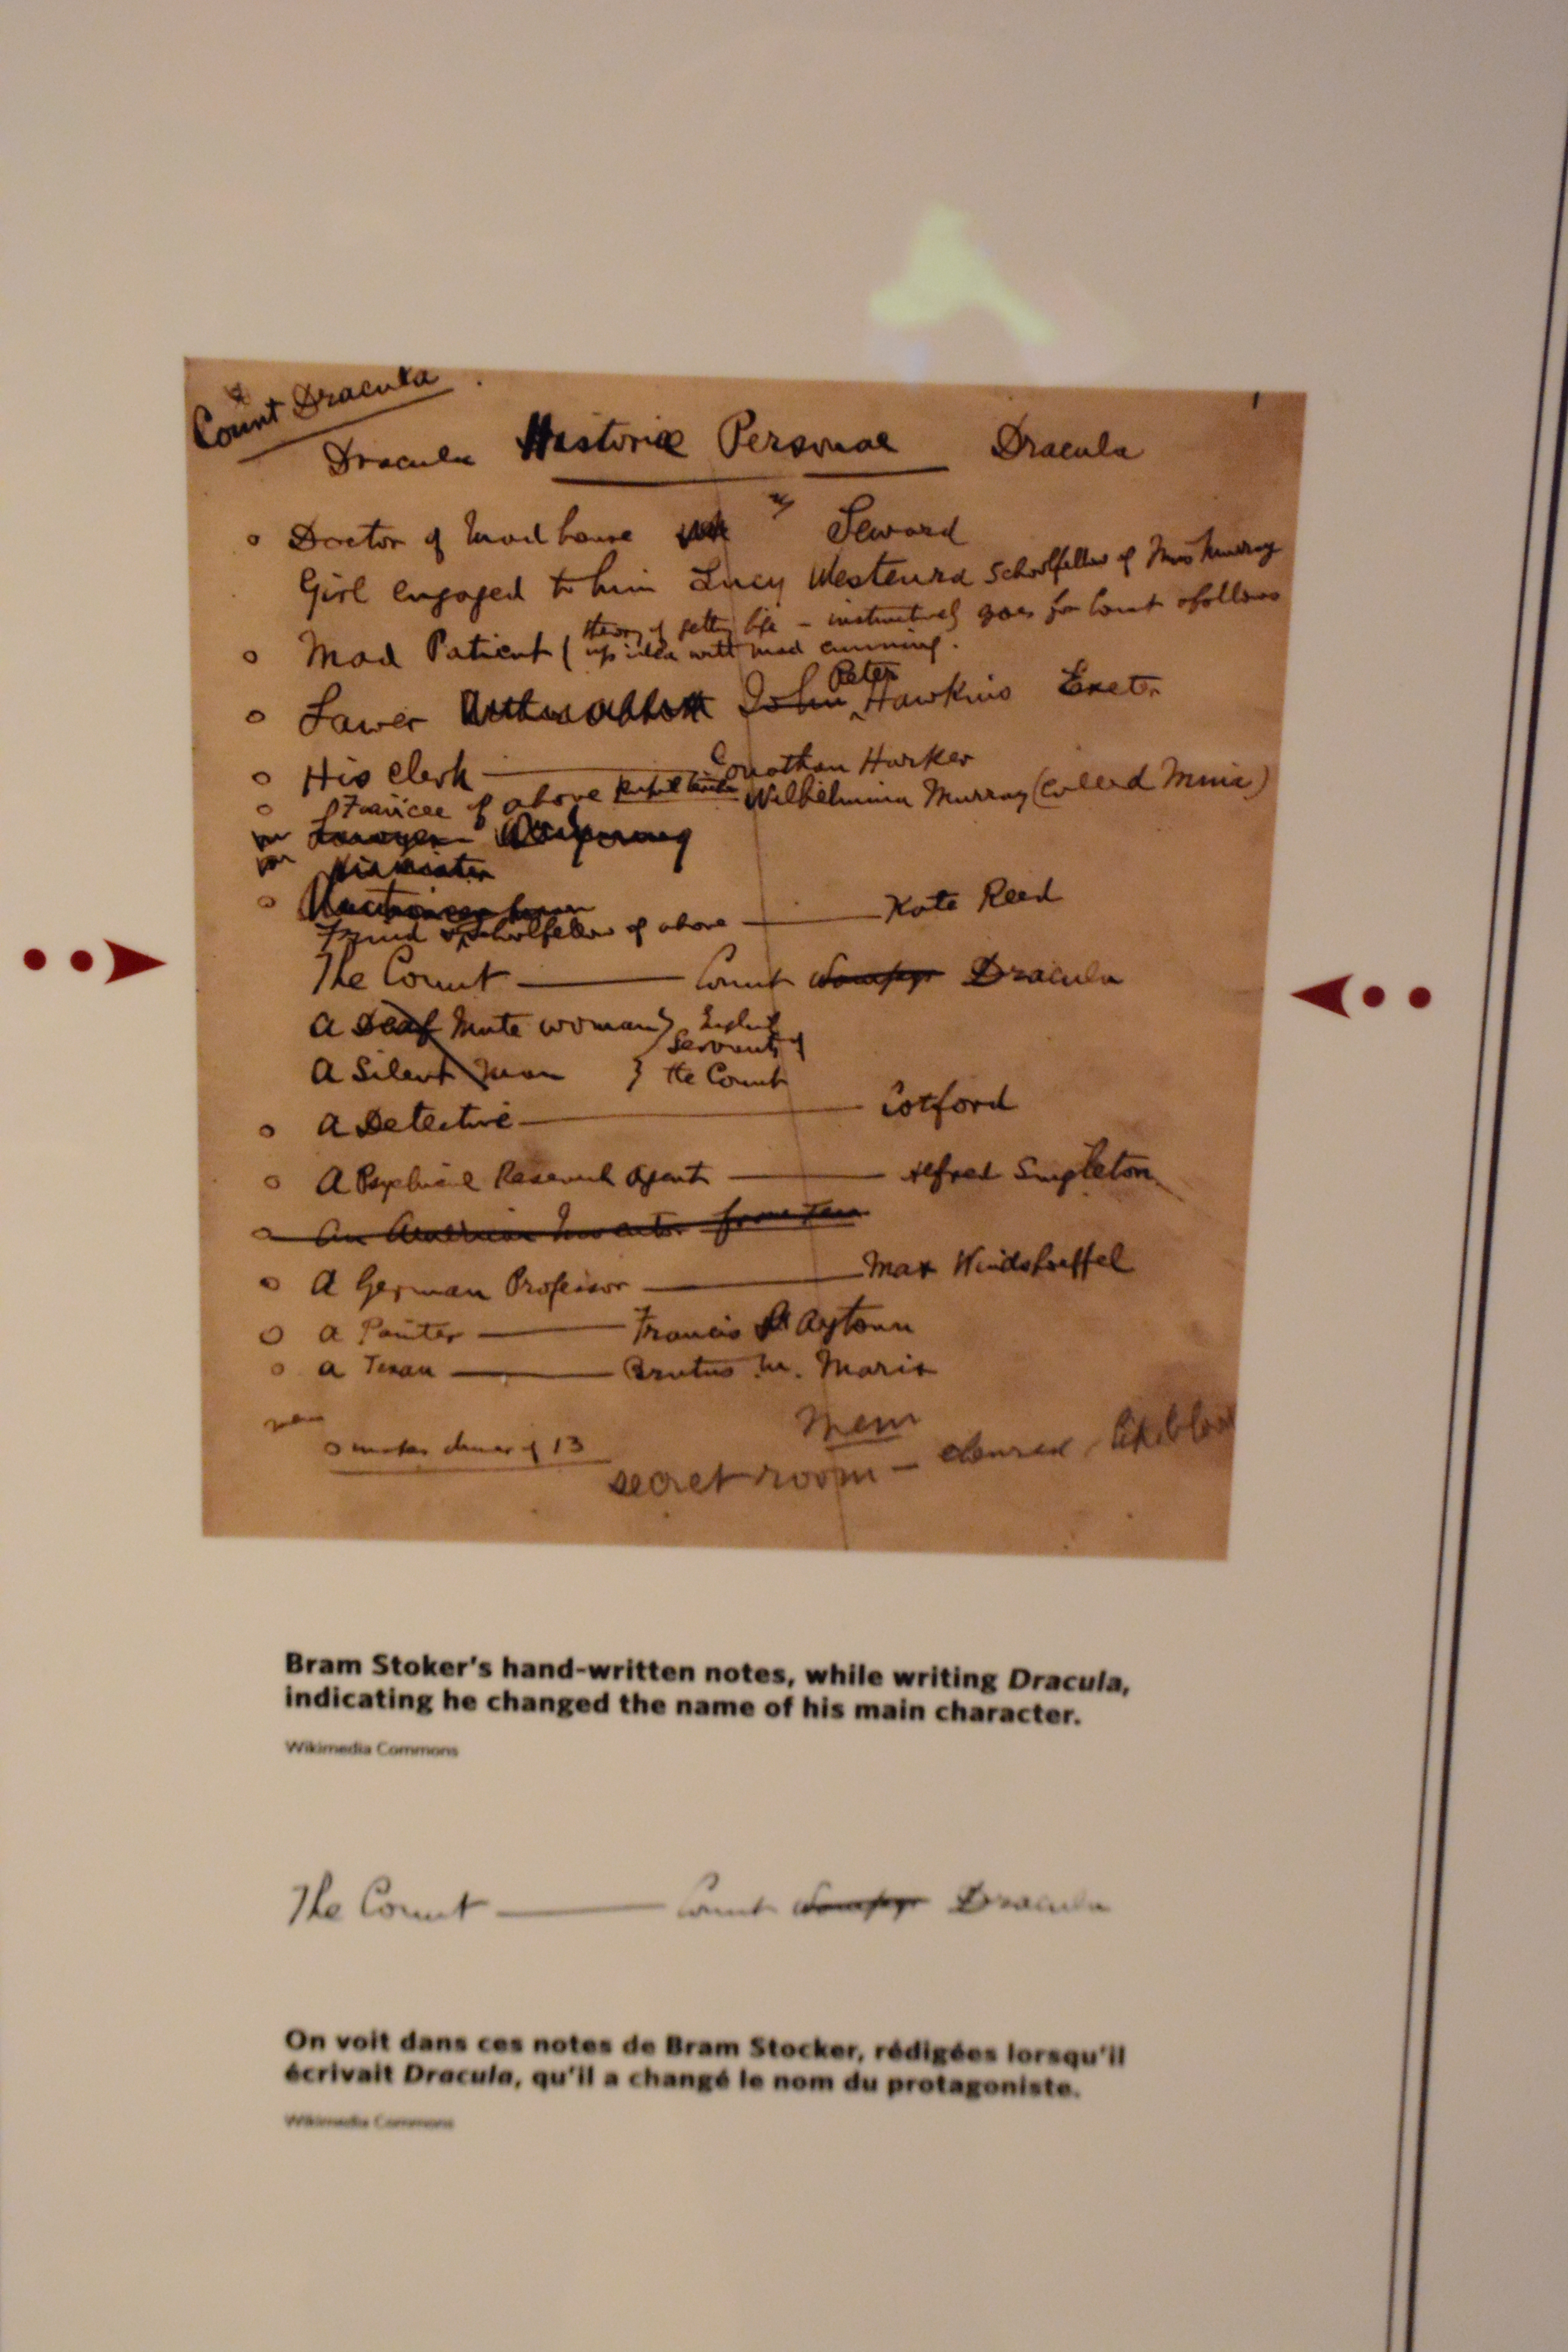 Count Dracula
Dracula Historiæ Personae Dracula
Doctor of Mad house Seward
Girl engaged to him Lucy Westenra Schoolfellow of Miss Murray
Mad Patient ( theory of getting life - instinctively goes for Count & follows
up idea with mad cunning.
Lawer John Peter Hawkins Exeter
His clerk Jonathan Harker
Fiancee of above Pupil teacher Wilhelmina Murray (called Mina)
Lawyer
Friend & Schoolfellow of above Kate Reed
The Count Count Wampyr Dracula
A Deaf Mute woman } English
Servants of
A Silent Man } the Count
A Detective Cotford
A Psychical Research Agent Alfred Singleton
An American Inventor from Texas
A German Professor Max Windshoeffel
A Painter Francis Aytown
A Texan Brutus M. Marix
Mem
secret room - coloured like blood
Bram Stoker's hand-written notes, while writing Dracula,
indicating he changed the name of his main character.
Wikimedia Commons
The Count Count Wampyr Dracula
On voit dans ces notes de Bram Stocker, rédigées lorsqu'il
écrivait Dracula, qu'il a changé le nom du protagoniste.
Wikimedia Commons